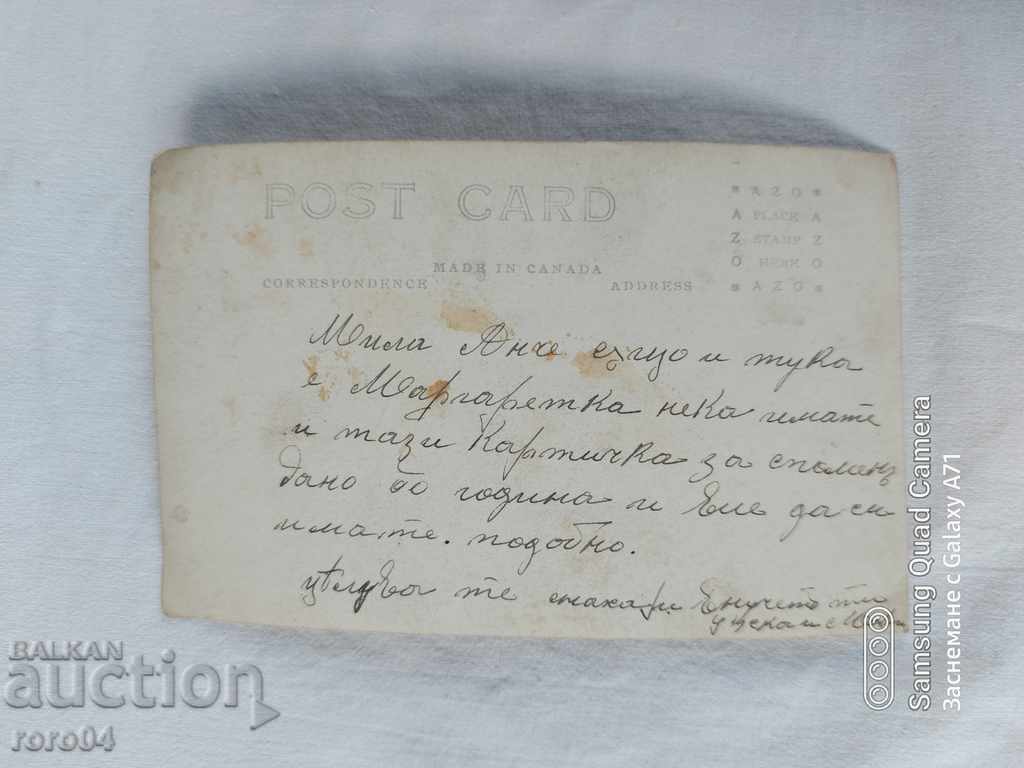 POST CARD
MADE IN CANADA
CORRESPONDENCE
ADDRESS
* AZO *
A PLACE A
Z STAMP Z
O HERE O
* AZO *
Мила Анче също и тука
е Маргаретка нека имате
и тази картичка за споменъ
дано до година и Вие да си
имате. подобно.
цѣлува те
BALKAN
auction
roro04
Samsung Quad Camera
Заснемане с Galaxy A71